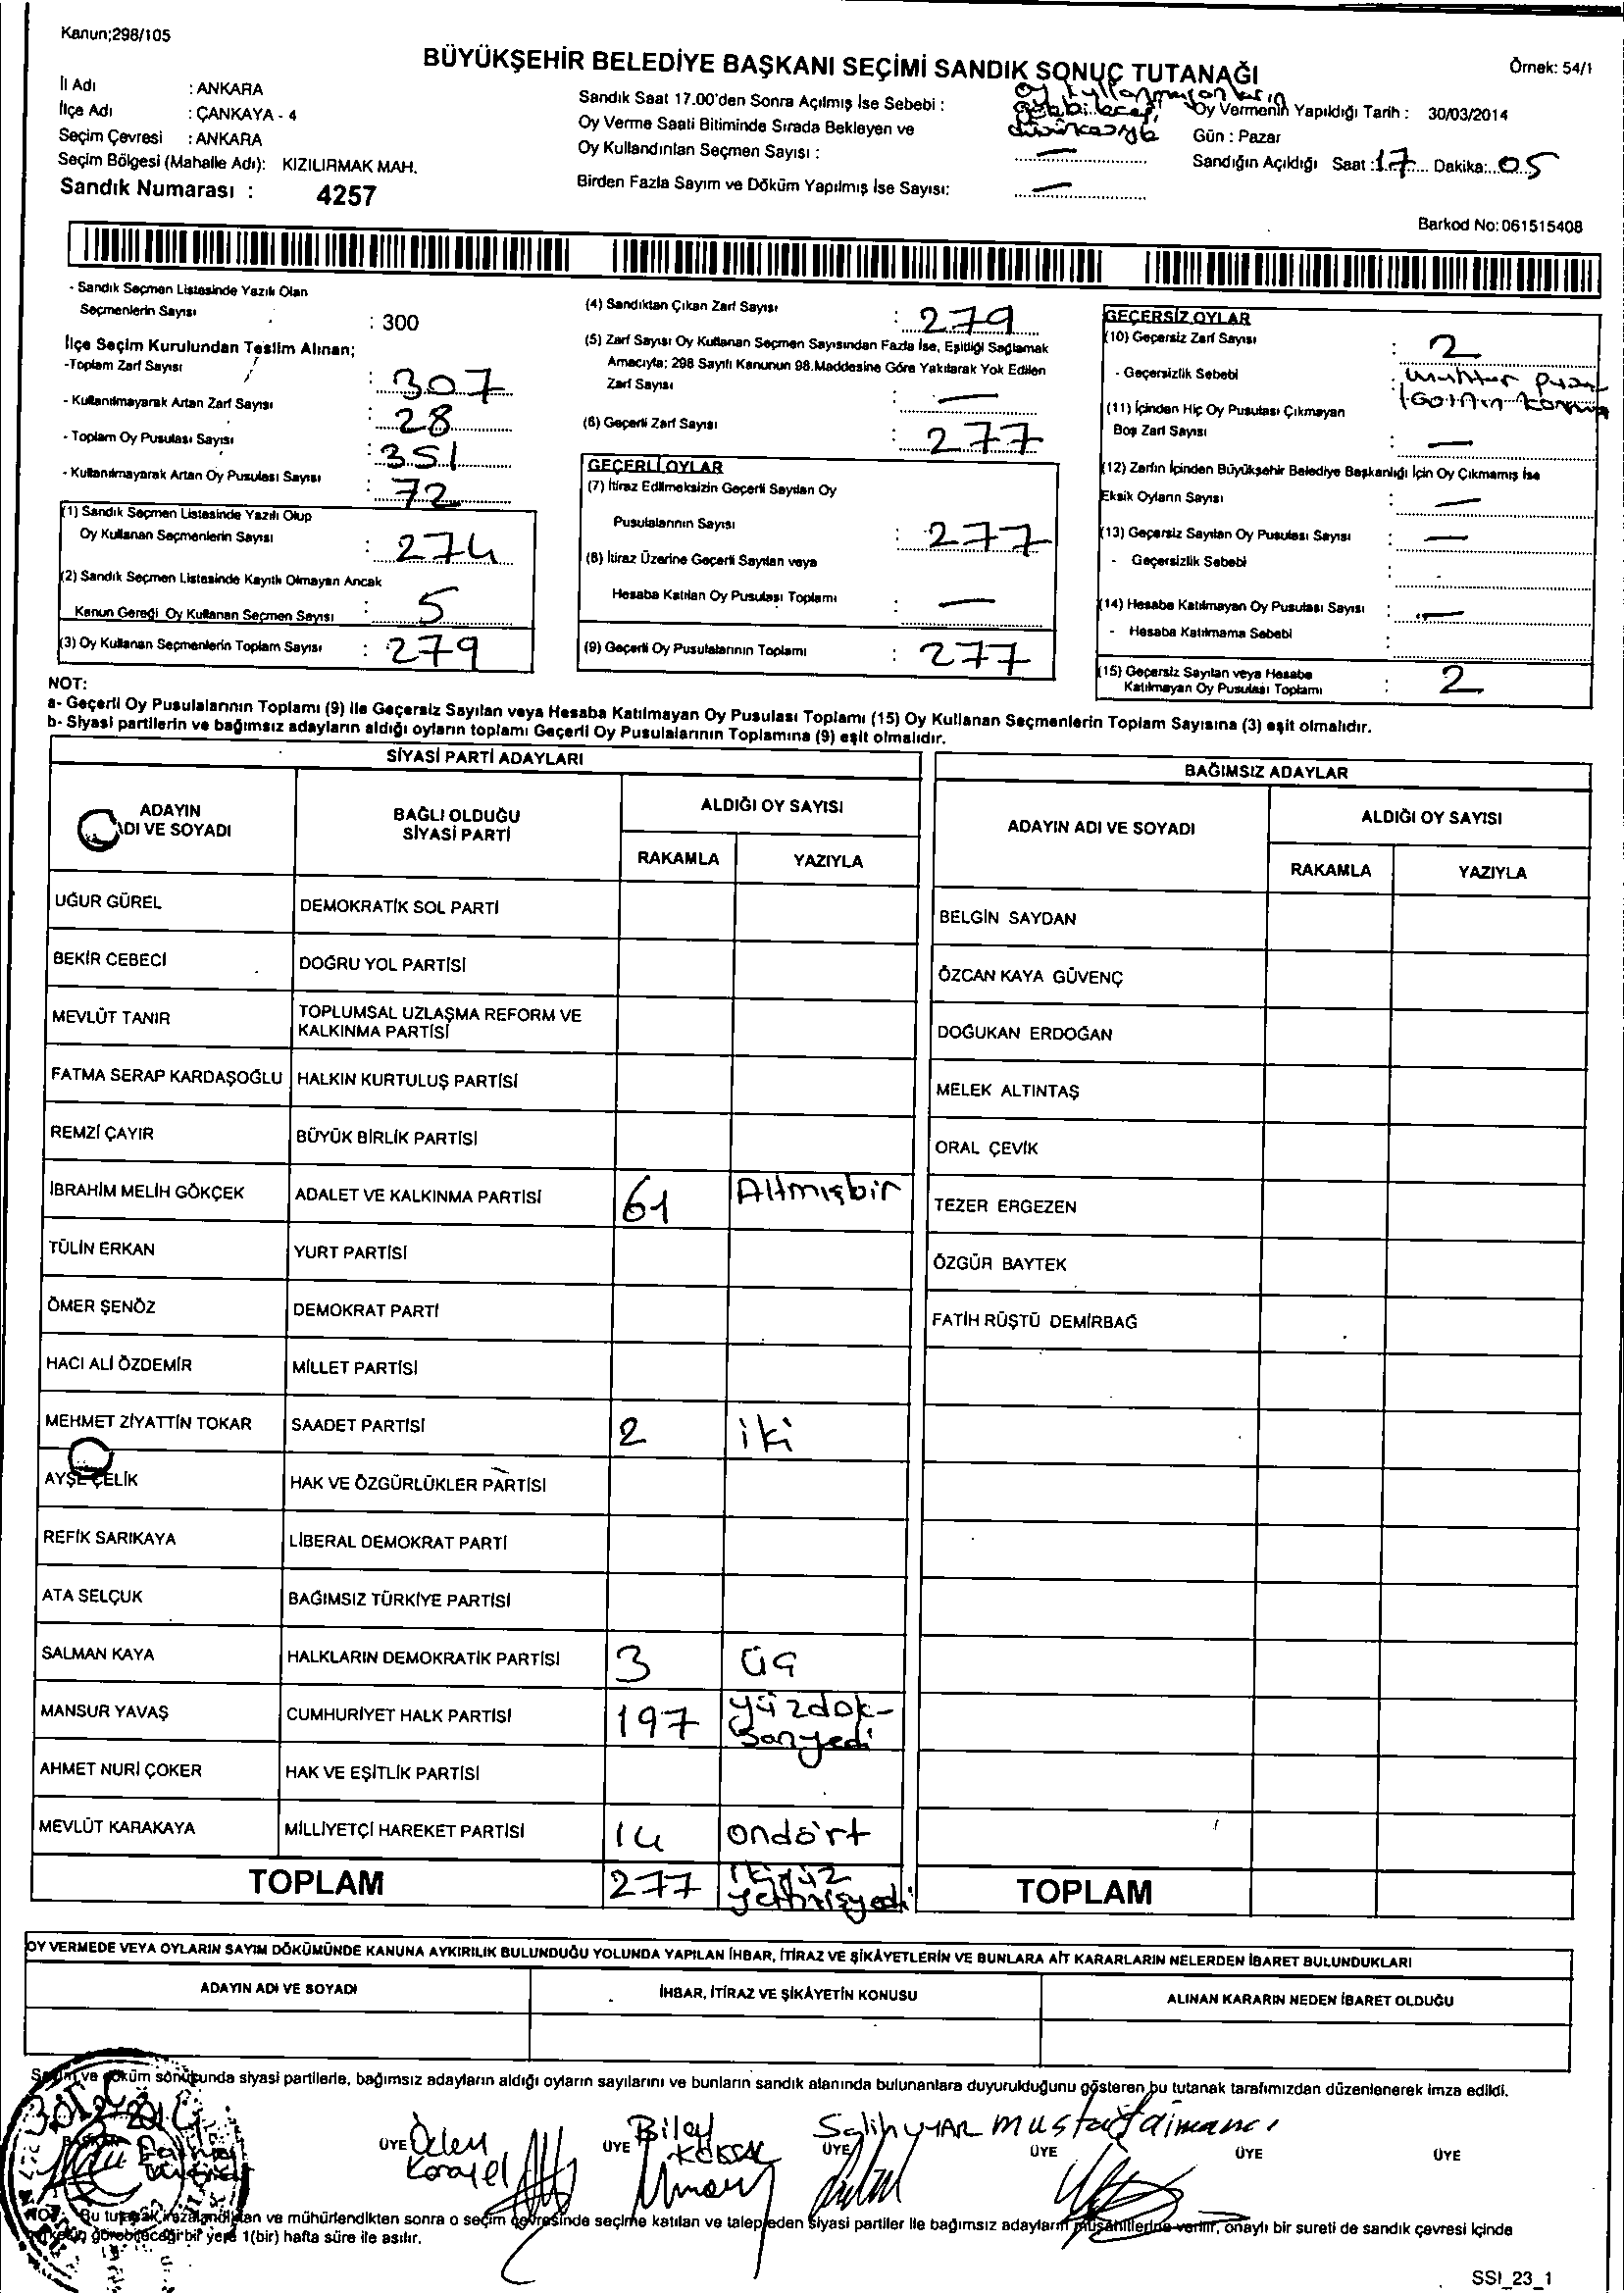 Kanun;298/105
BÜYÜKŞEHİR BELEDİYE BAŞKANI SEÇİMİ SANDIK SONUÇ TUTANAĞI
Örnek: 54/1
İl Adı : ANKARA
İlçe Adı : ÇANKAYA - 4
Seçim Çevresi : ANKARA
Seçim Bölgesi (Mahalle Adı): KIZILIRMAK MAH.
Sandık Numarası : 4257
Sandık Saat 17.00'den Sonra Açılmış İse Sebebi : oy kullanmayanların
düşüncesiyle
Oy Verme Saati Bitiminde Sırada Bekleyen ve
Oy Kullandırılan Seçmen Sayısı : —
Birden Fazla Sayım ve Döküm Yapılmış İse Sayısı: —
Oy Vermenin Yapıldığı Tarih : 30/03/2014
Gün : Pazar
Sandığın Açıldığı Saat : 17 Dakika: 05
Barkod No: 061515408
- Sandık Seçmen Listesinde Yazılı Olan
Seçmenlerin Sayısı : 300
İlçe Seçim Kurulundan Teslim Alınan;
-Toplam Zarf Sayısı : 307
- Kullanılmayarak Artan Zarf Sayısı : 28
- Toplam Oy Pusulası Sayısı : 351
- Kullanılmayarak Artan Oy Pusulası Sayısı : 72
(1) Sandık Seçmen Listesinde Yazılı Olup
Oy Kullanan Seçmenlerin Sayısı : 274
(2) Sandık Seçmen Listesinde Kayıtlı Olmayan Ancak
Kanun Gereği Oy Kullanan Seçmen Sayısı : 5
(3) Oy Kullanan Seçmenlerin Toplam Sayısı : 279
(4) Sandıktan Çıkan Zarf Sayısı : 279
(5) Zarf Sayısı Oy Kullanan Seçmen Sayısından Fazla İse, Eşitliği Sağlamak
Amacıyla; 298 Sayılı Kanunun 98.Maddesine Göre Yakılarak Yok Edilen
Zarf Sayısı : —
(6) Geçerli Zarf Sayısı : 277
GEÇERLİ OYLAR
(7) İtiraz Edilmeksizin Geçerli Sayılan Oy
Pusulalarının Sayısı : 277
(8) İtiraz Üzerine Geçerli Sayılan veya
Hesaba Katılan Oy Pusulası Toplamı : —
(9) Geçerli Oy Pusulalarının Toplamı : 277
GEÇERSİZ OYLAR
(10) Geçersiz Zarf Sayısı : 2
- Geçersizlik Sebebi : muhtar
(11) İçinden Hiç Oy Pusulası Çıkmayan
Boş Zarf Sayısı : —
(12) Zarfın İçinden Büyükşehir Belediye Başkanlığı İçin Oy Çıkmamış İse
Eksik Oyların Sayısı : —
(13) Geçersiz Sayılan Oy Pusulası Sayısı : —
- Geçersizlik Sebebi :
(14) Hesaba Katılmayan Oy Pusulası Sayısı : —
- Hesaba Katılmama Sebebi :
(15) Geçersiz Sayılan veya Hesaba
Katılmayan Oy Pusulası Toplamı : 2
NOT:
a- Geçerli Oy Pusulalarının Toplamı (9) ile Geçersiz Sayılan veya Hesaba Katılmayan Oy Pusulası Toplamı (15) Oy Kullanan Seçmenlerin Toplam Sayısına (3) eşit olmalıdır.
b- Siyasi partilerin ve bağımsız adayların aldığı oyların toplamı Geçerli Oy Pusulalarının Toplamına (9) eşit olmalıdır.
SİYASİ PARTİ ADAYLARI
ADAYIN ADI VE SOYADI BAĞLI OLDUĞU SİYASİ PARTİ ALDIĞI OY SAYISI
RAKAMLA YAZIYLA
UĞUR GÜREL DEMOKRATİK SOL PARTİ
BEKİR CEBECİ DOĞRU YOL PARTİSİ
MEVLÜT TANIR TOPLUMSAL UZLAŞMA REFORM VE
KALKINMA PARTİSİ
FATMA SERAP KARDAŞOĞLU HALKIN KURTULUŞ PARTİSİ
REMZİ ÇAYIR BÜYÜK BİRLİK PARTİSİ
İBRAHİM MELİH GÖKÇEK ADALET VE KALKINMA PARTİSİ 61 Altmışbir
TÜLİN ERKAN YURT PARTİSİ
ÖMER ŞENÖZ DEMOKRAT PARTİ
HACI ALİ ÖZDEMİR MİLLET PARTİSİ
MEHMET ZİYATTİN TOKAR SAADET PARTİSİ 2 iki
AYŞE ÇELİK HAK VE ÖZGÜRLÜKLER PARTİSİ
REFİK SARIKAYA LİBERAL DEMOKRAT PARTİ
ATA SELÇUK BAĞIMSIZ TÜRKİYE PARTİSİ
SALMAN KAYA HALKLARIN DEMOKRATİK PARTİSİ 3 üç
MANSUR YAVAŞ CUMHURİYET HALK PARTİSİ 197 yüzdok-
sanyedi
AHMET NURİ ÇOKER HAK VE EŞİTLİK PARTİSİ
MEVLÜT KARAKAYA MİLLİYETÇİ HAREKET PARTİSİ 14 ondört
TOPLAM 277 ikiyüz
yetmişyedi
BAĞIMSIZ ADAYLAR
ADAYIN ADI VE SOYADI ALDIĞI OY SAYISI
RAKAMLA YAZIYLA
BELGİN SAYDAN
ÖZCAN KAYA GÜVENÇ
DOĞUKAN ERDOĞAN
MELEK ALTINTAŞ
ORAL ÇEVİK
TEZER ERGEZEN
ÖZGÜR BAYTEK
FATİH RÜŞTÜ DEMİRBAĞ
TOPLAM
OY VERMEDE VEYA OYLARIN SAYIM DÖKÜMÜNDE KANUNA AYKIRILIK BULUNDUĞU YOLUNDA YAPILAN İHBAR, İTİRAZ VE ŞİKÂYETLERİN VE BUNLARA AİT KARARLARIN NELERDEN İBARET BULUNDUKLARI
ADAYIN ADI VE SOYADI İHBAR, İTİRAZ VE ŞİKÂYETİN KONUSU ALINAN KARARIN NEDEN İBARET OLDUĞU
Sayım ve döküm sonucunda siyasi partilerle, bağımsız adayların aldığı oyların sayılarını ve bunların sandık alanında bulunanlara duyurulduğunu gösteren bu tutanak tarafımızdan düzenlenerek imza edildi.
BAŞKAN
ÜYE
ÜYE
ÜYE Salih UYAR
ÜYE
ÜYE
ÜYE
NOT: Bu tutanak imzalandıktan ve mühürlendikten sonra o seçim çevresinde seçime katılan ve talep eden siyasi partiler ile bağımsız adayların müşahitlerine verilir, onaylı bir sureti de sandık çevresi içinde
herkesin görebileceği bir yere 1(bir) hafta süre ile asılır.
SSI_23_1